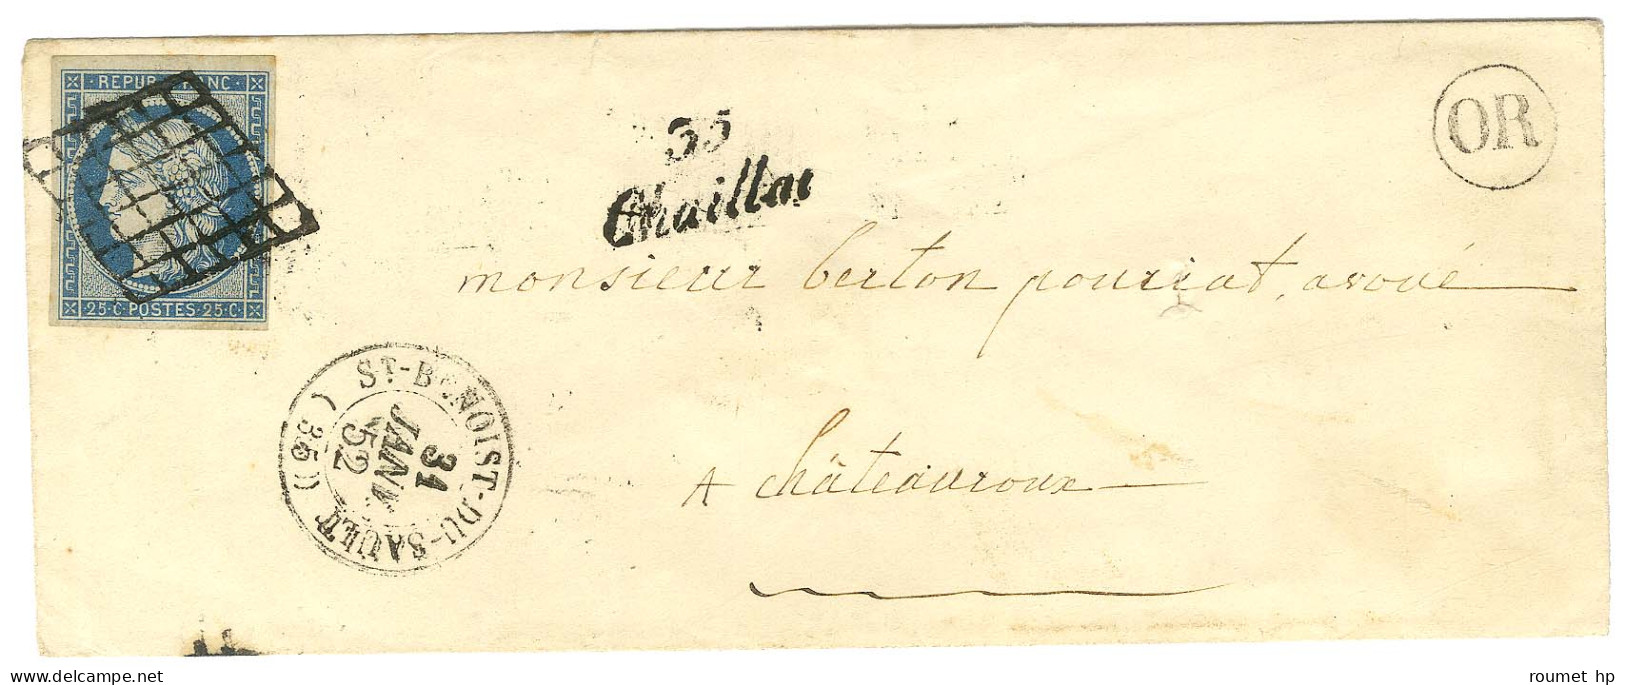 REPUB FRANC
25·C·POSTES·25·C·
35
Chaillac
OR
monsieur berton pouriat, avoué
ST-BENOIST-DU-SAULT
31
JANV.
52
(35)
A Châteauroux
roumet hp